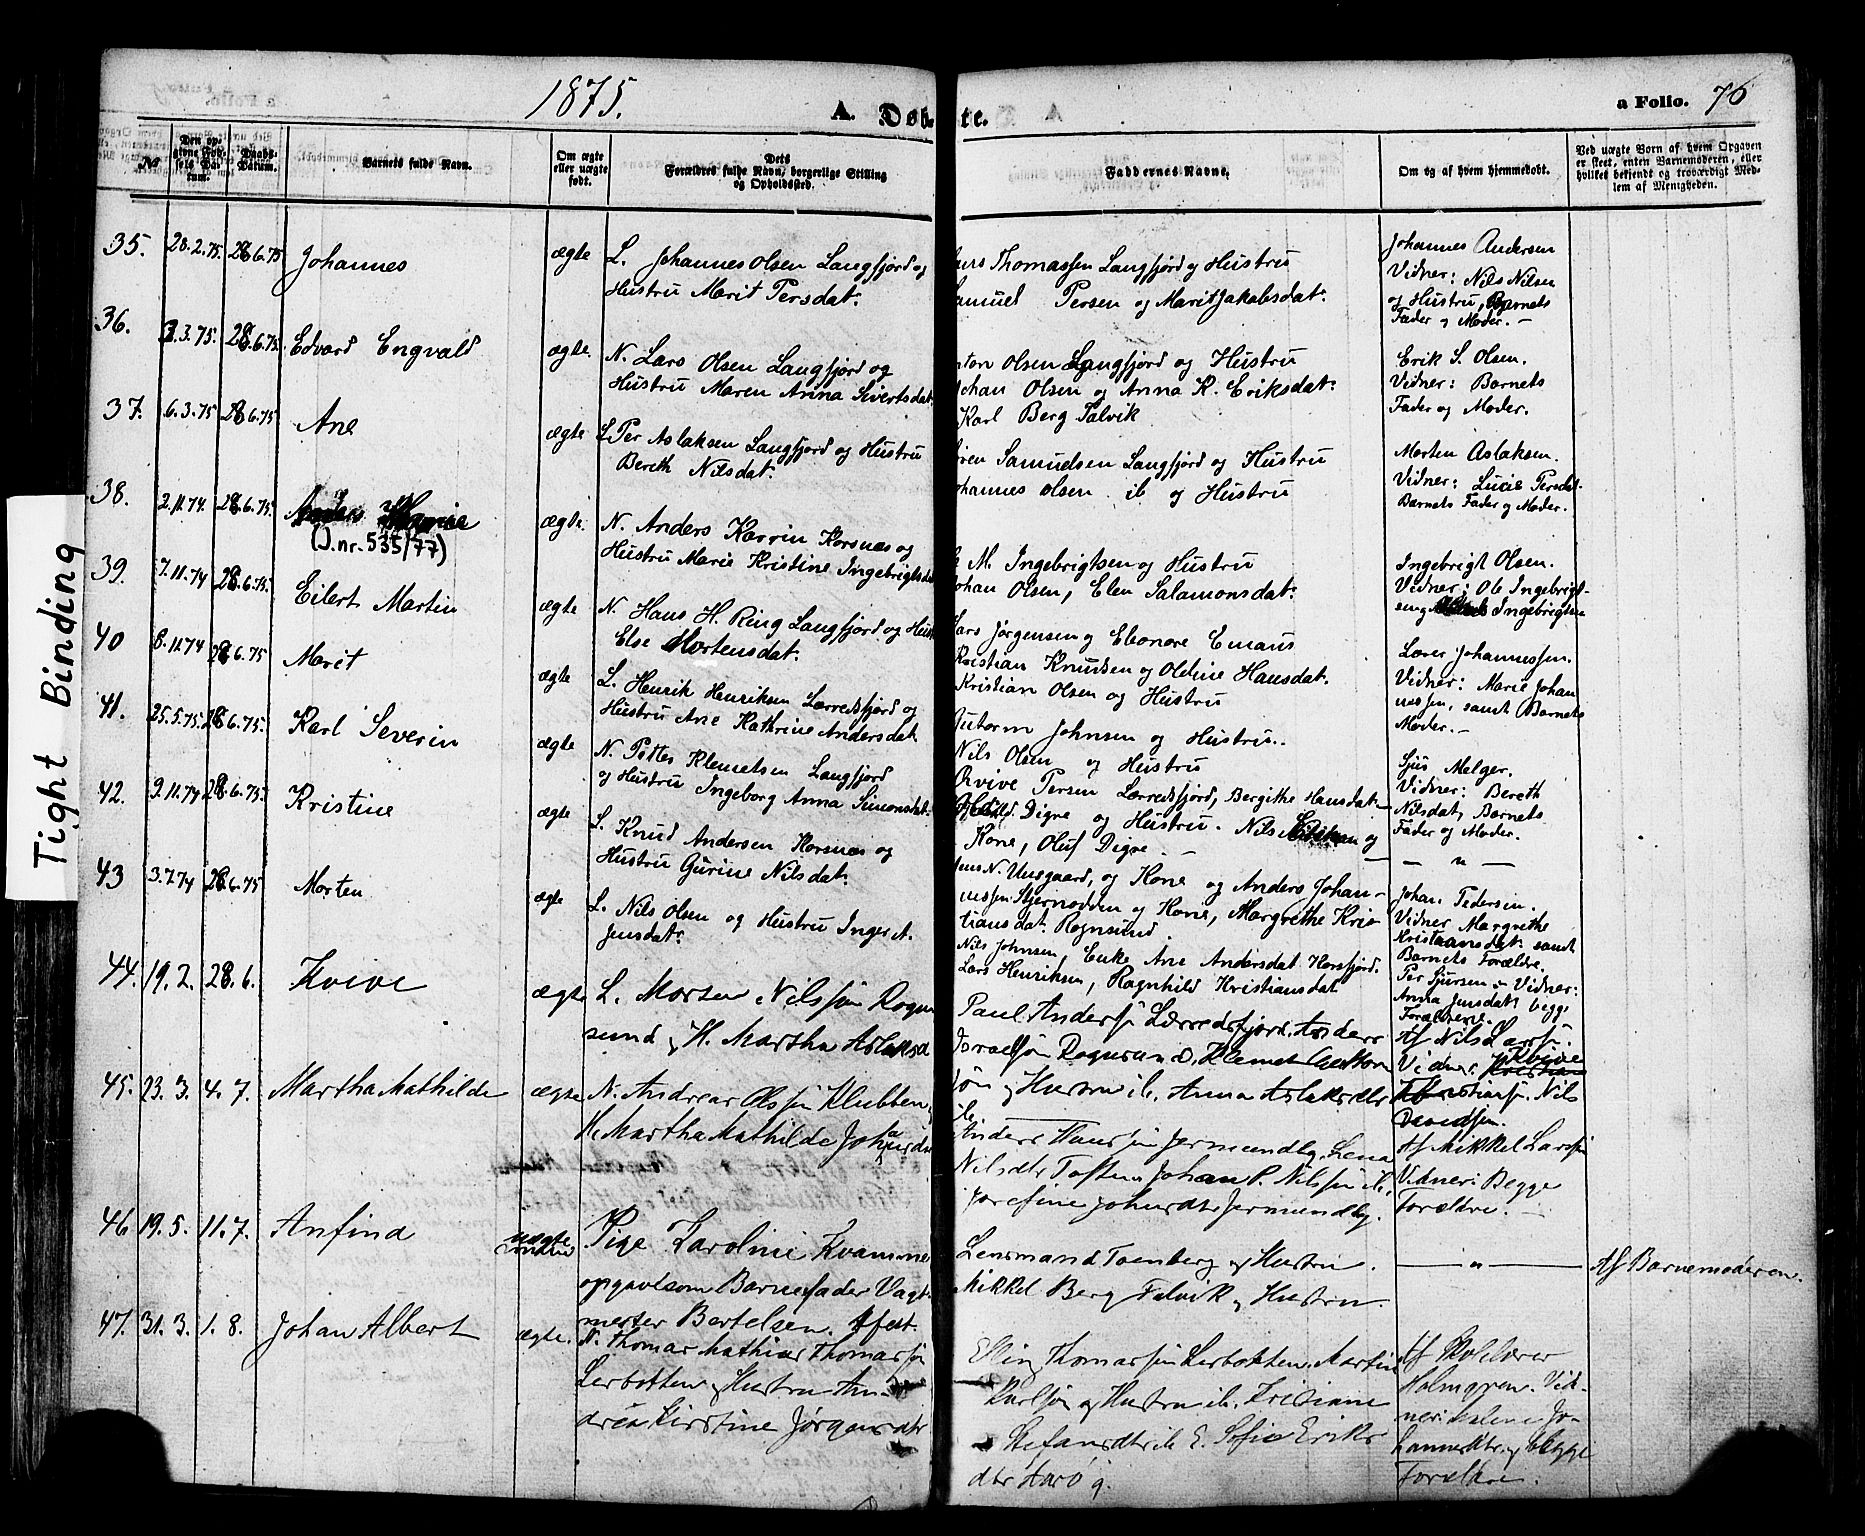 1875.
A. Døb te.
a Folio. 76
Tight Binding
No
Den opgivne Fødsels Datum.
Daabs-Datum.
Barnets fulde Navn.
Om ægte eller uægte født.
Dets Forældres fulde Navn, borgerlige Stilling og Opholdssted.
Faddernes Navne.
Om og af hvem hjemmedøbt.
Ved uægte Børn af hvem Opgaven er skeet, enten Barnemoderen, eller hvilket bekjendt og troværdigt Medlem af Menigheden.
35. 28.2.75. 28.6.75 Johannes ægte
L. Johannes Olsen Langfjord og
Hustru Marit Persdat.
Thomassen Langfjord og Hustru
Persen og Marit Jakobsdat.
Johannes Andersen
Vidner: Nils Nilsen
og Hustru, Barnets
Fader og Moder. –
36. 3.3.75. 28.6.75. Edvard Engvald ægte.
N. Lars Olsen Langfjord og
Hustru Maren Anna Sivertsdat.
Olsen Langfjord og Hustru
Olsen og Anna K. Eriksdat.
Karl Berg Talvik
Erik S. Olsen.
Vidner: Barnets
Fader og Moder.
37. 6.3.75 28.6.75 Ane ægte
L. Per Aslaksen Langfjord og Hustru
Bereth Nilsdat.
Samuelsen Langfjord og Hustru
Olsen ib og Hustru
Morten Aslaksen.
Vidner: Lucie Persdat.
Barnets Fader og Moder.
38. 2.11.74. 28.6.75.
(J.nr. 535/77)
ægte.
N. Anders Karvin Korsnæs og
Hustru Marie Kristine Ingebrigtsdat
M. Ingebrigtsen og Hustru
Olsen, Elen Salamonsdat.
Ingebrigt Olsen.
Vidner: Ole Ingebrigt-
sen og Ingebrigtsen
39. 7.11.74 28.6.75. Eilert Martin ægte
N. Hans H. Ring Langfjord og Hust
Else Mortensdat.
Lars Jørgensen og Eleonore Emaus
Kristian Knudsen og Oldine Hansdat.
Kristian Olsen og Hustru
Lærer Johannessen.
Vidner: Marie Johan
nessen, samt Barnets
Moder. –
40 8.11.74 28.6.75 Marit ægte
L. Henrik Henriksen Lærredsfjord og
Hustru Ane Kathrine Andersdat.
Gutorm Johnsen og Hustru.
Nils Olsen og Hustru
41. 25.5.75. 28.6.75. Karl Severin ægte
N. Klemetsen Langfjord
og Hustru Ingeborg Anna Simonsdat.
Persen Lærredsfjord, Bergithe Hansdat –
Digre og Hustru. Nils og
Kone, Oluf Digre –
Melger.
Vidner: Bereth
Nilsdat, Barnets
Fader og Moder.
42. 9.11.74 28.6.75. Kristine ægte
L. Knud Andersen Korsnæs og
Hustru Gurine Nilsdat.
og Kone og Anders Johan-
nessen og Kone, Margrethe Kris
tiansdat. Rognsund.
— " —
43 3.7.74 28.6.75 Morten ægte
L. Nils Olsen og Hustru Inger A.
Jensdat.
Nils Johnsen, Enke Ane Andersdat Korsfjord.
Lars Henriksen, Ragnhild Kristiansdat
Johan Pedersen.
Vidner Margrethe
Kristiansdat. samt
Barnets Forældre.
44. 19.2. 28.6. Kvive ægte
L. Morten Nilssøn Rogn
sund og H. Martha Aslaksd
Paul Anderss Lærredsfjord, Anders
Israelsøn Rognsund, Klemet
og Hustru ib. Anna Aslaksdtr
ib.
Per Sjursen – Vidner:
Anna Jensdat, begge
Forældrene.
45. 23.3. 4.7. Martha Mathilde ægte
N. Andreas Olssøn Klubben,
H. Martha Mathilde Johansdr
Anders Hanssøn Jermundby, Lena
Nilsdtr Toften, Johan P. Nilssøn ib.
Josefine Johnsdtr Jermundby.
Af Nils Larss.
Vidner: Kvive
Nils
Davidsen.
Af Mikkel Larssøn
Vidner: Begge
Forældre.
46 19.5. 11.7. Anfind uægte
Pige Karoline Kvamme
opgav som Barnefader Vagt-
mester Bertelsen,
Lensmand Tomberg og Hustru.
Mikkel Berg Talvik og Hustru.
— " —
Af Barnemoderen.
47. 31.3. 1.8. Johan Albert ægte.
N. Thomas Mathias Thomassøn
Lerbotten og Hustru An-
drea Kirstine Jørgensdtr
Elling Thomassøn Lerbotten, Martin
Karlsøn og Hustru ib. Kristiane
Stefansdtr ib. E. Sofie Eriks
dtr Aarø
Af Skolelærer
Holmgren. Vid-
ner: Malene Jo-
hannesdtr. og begge
Forældre.